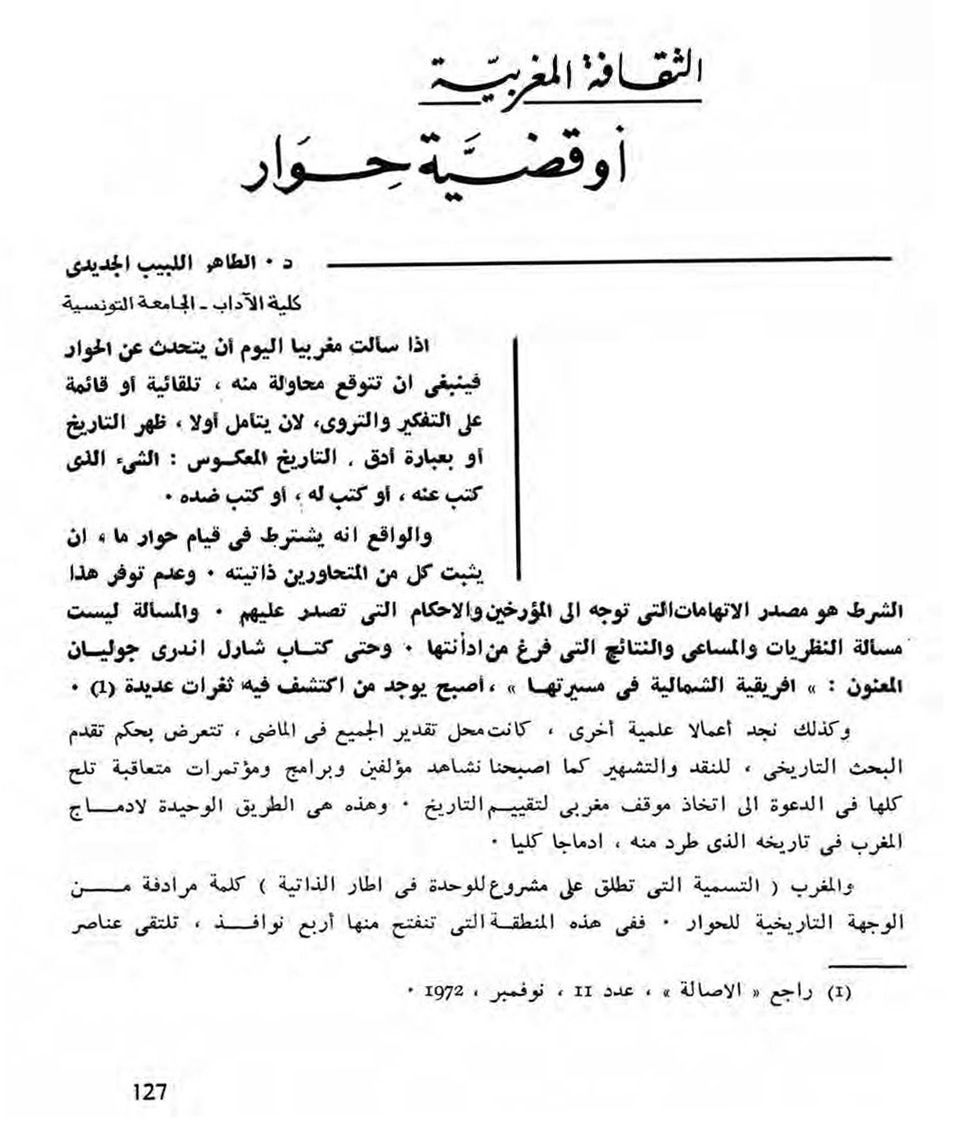 الثقافة المغربيّة
أو قضيَّة حِوَار
د · الطاهر اللبيب الجديدى
كلية الآداب - الجامعة التونسية
اذا سألت مغربيا اليوم أن يتحدث عن الحوار
فينبغى ان تتوقع محاولة منه ، تلقائية أو قائمة
على التفكير والتروى، لان يتأمل أولا ، ظهر التاريخ
أو بعبارة أدق . التاريخ المعكوس : الشىء الذى
كتب عنه ، أو كتب له ، أو كتب ضده ·
والواقع انه يشترط فى قيام حوار ما ، ان
يثبت كل من المتحاورين ذاتيته · وعدم توفر هذا
الشرط هو مصدر الاتهامات التى توجه الى المؤرخين والاحكام التى تصدر عليهم · والمسألة ليست
مسألة النظريات والمساعى والنتائج التى فرغ من ادأنتها · وحتى كتاب شارل اندرى جوليان
المعنون : « افريقية الشمالية فى مسيرتها » ، أصبح يوجد من اكتشف فيه ثغرات عديدة (1) ·
وكذلك نجد أعمالا علمية أخرى ، كانت محل تقدير الجميع فى الماضى ، تتعرض بحكم تقدم
البحث التاريخى ، للنقد والتشهير كما اصبحنا نشاهد مؤلفين وبرامج ومؤتمرات متعاقبة تلح
كلها فى الدعوة الى اتخاذ موقف مغربى لتقييم التاريخ · وهذه هى الطريق الوحيدة لادماج
المغرب فى تاريخه الذى طرد منه ، ادماجا كليا ·
والمغرب ( التسمية التى تطلق على مشروع للوحدة فى اطار الذاتية ) كلمة مرادفة من
الوجهة التاريخية للحوار · ففى هذه المنطقة التى تنفتح منها أربع نوافذ ، تلتقى عناصر
(1) راجع « الاصالة » ، عدد 11 ، نوفمبر ، 1972 ·
127